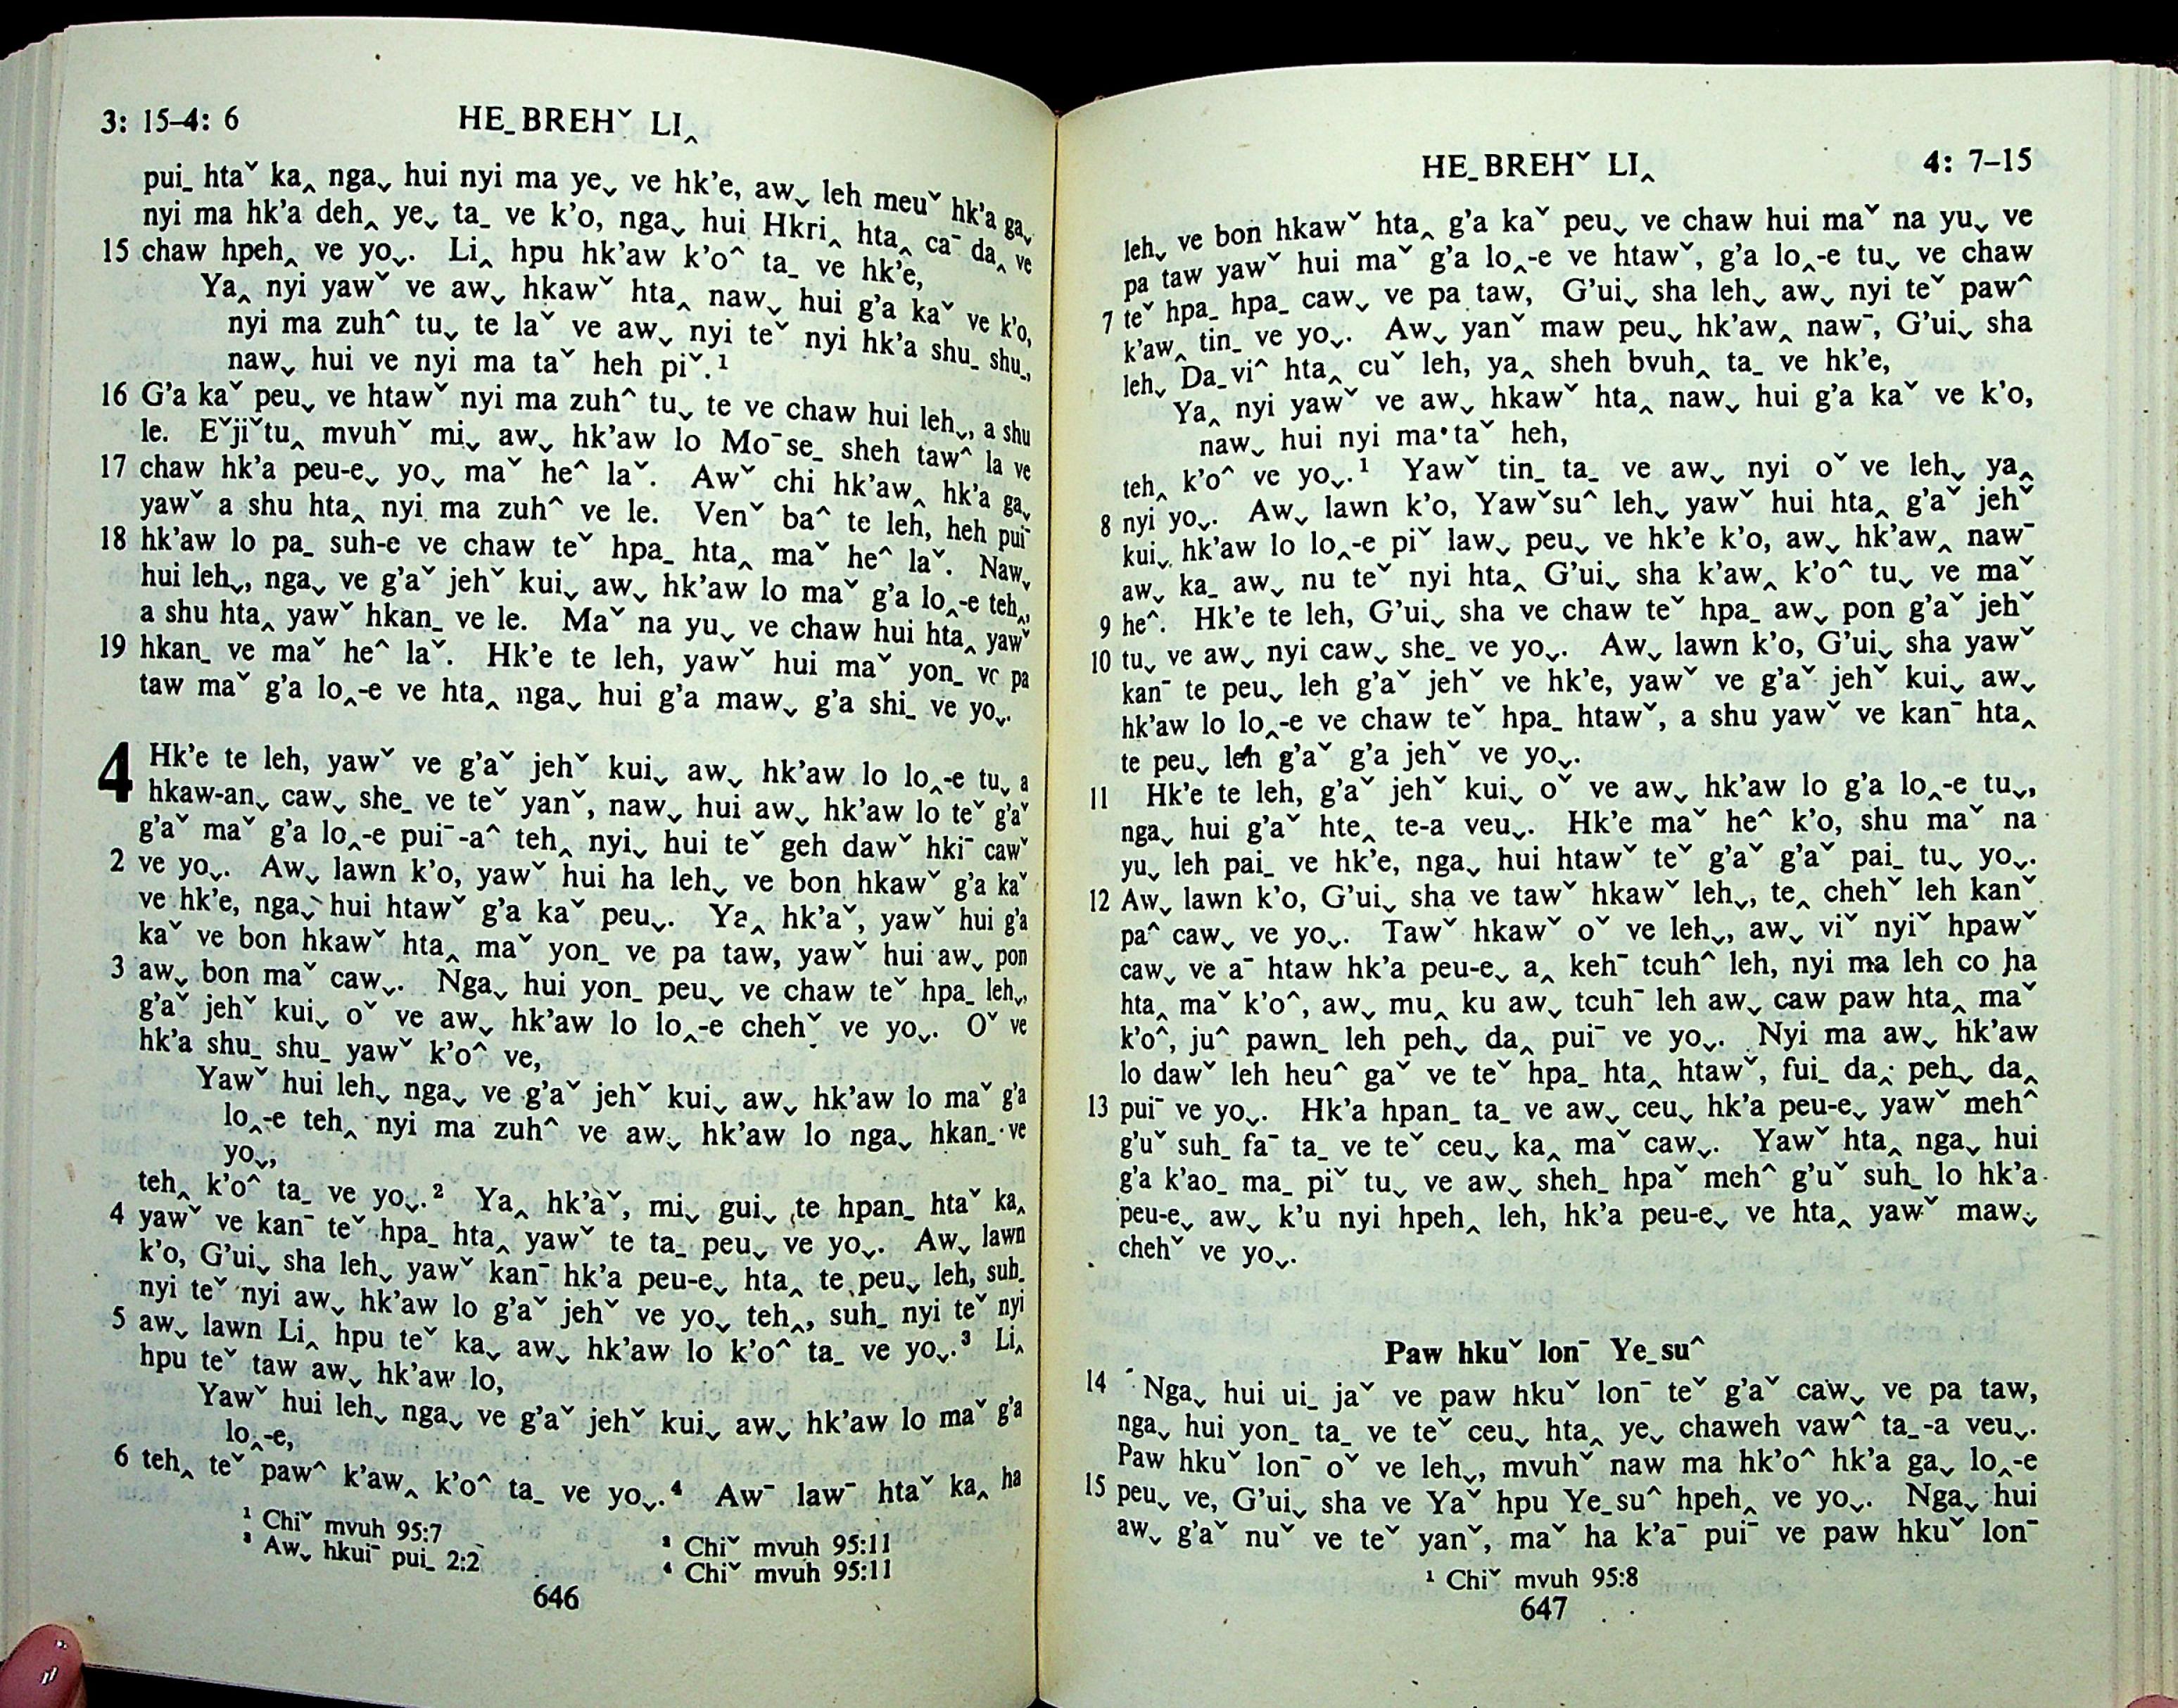 3: 15–4: 6
HE_BREHˇ LI‸
pui_ htaˇ ka‸ ngaˬ hui nyi ma yeˬ ve hk’e, awˬ leh meuˇ hk’a gaˬ
nyi ma hk’a deh‸ yeˬ ta_ ve k’o, ngaˬ hui Hkri‸ hta‸ caˉ da‸ ve
15 chaw hpeh‸ ve yoˬ. Li‸ hpu hk’aw k’o^ ta_ ve hk’e,
Ya‸ nyi yawˇ ve awˬ hkawˇ hta‸ nawˬ hui g’a kaˇ ve k’o,
nyi ma zuh^ tuˬ te laˇ ve awˬ nyi teˇ nyi hk’a shu_ shu_,
nawˬ hui ve nyi ma taˇ heh piˇ.¹
16 G’a kaˇ peuˬ ve htawˇ nyi ma zuh^ tuˬ te ve chaw hui lehˬ, a shu
le. Eˇjiˇtu‸ mvuhˇ miˬ awˬ hk’aw lo Moˉse_ sheh taw^ la ve
17 chaw hk’a peu-eˬ yoˬ maˇ he^ laˇ. Awˇ chi hk’aw‸ hk’a gaˬ
yawˇ a shu hta‸ nyi ma zuh^ ve le. Venˇ ba^ te leh, heh puiˉ
18 hk’aw lo pa_ suh-e ve chaw teˇ hpa_ hta‸ maˇ he^ laˇ. Nawˬ
hui lehˬ, ngaˬ ve g’aˇ jehˇ kuiˬ awˬ hk’aw lo maˇ g’a lo‸-e teh‸,
a shu hta‸ yawˇ hkan_ ve le. Maˇ na yuˬ ve chaw hui hta‸ yawˇ
19 hkan_ ve maˇ he^ laˇ. Hk’e te leh, yawˇ hui maˇ yon_ ve pa
taw maˇ g’a lo‸-e ve hta‸ ngaˬ hui g’a mawˬ g’a shi_ ve yoˬ.
4 Hk’e te leh, yawˇ ve g’aˇ jehˇ kuiˬ awˬ hk’aw lo lo‸-e tuˬ a
hkaw-anˬ cawˬ she_ ve teˇ yanˇ, nawˬ hui awˬ hk’aw lo teˇ g’aˇ
g’aˇ maˇ g’a lo‸-e puiˉ-a^ teh‸ nyiˬ hui teˇ geh dawˇ hkiˉ cawˇ
2 ve yoˬ. Awˬ lawn k’o, yawˇ hui ha lehˬ ve bon hkawˇ g’a kaˇ
ve hk’e, ngaˬ hui htawˇ g’a kaˇ peuˬ. Ya‸ hk’aˇ, yawˇ hui g’a
kaˇ ve bon hkawˇ hta‸ maˇ yon_ ve pa taw, yawˇ hui awˬ pon
3 awˬ bon maˇ cawˬ. Ngaˬ hui yon_ peuˬ ve chaw teˇ hpa_ lehˬ,
g’aˇ jehˇ kuiˬ oˇ ve awˬ hk’aw lo lo‸-e chehˇ ve yoˬ. Oˇ ve
hk’a shu_ shu_ yawˇ k’o^ ve,
Yawˇ hui lehˬ ngaˬ ve g’aˇ jehˇ kuiˬ awˬ hk’aw lo maˇ g’a
lo‸-e teh‸ nyi ma zuh^ ve awˬ hk’aw lo ngaˬ hkan_ ve
yoˬ,
teh‸ k’o^ ta_ ve yoˬ.² Ya‸ hk’aˇ, miˬ guiˬ te hpan_ htaˇ ka‸
4 yawˇ ve kanˉ teˇ hpa_ hta‸ yawˇ te ta_ peuˬ ve yoˬ. Awˬ lawn
k’o, G’uiˬ sha lehˬ yawˇ kanˉ hk’a peu-eˬ hta‸ te peuˬ leh, suh_
nyi teˇ nyi awˬ hk’aw lo g’aˇ jehˇ ve yoˬ teh‸, suh_ nyi teˇ nyi
5 awˬ lawn Li‸ hpu teˇ kaˬ awˬ hk’aw lo k’o^ ta_ ve yoˬ.³ Li‸
hpu teˇ taw awˬ hk’aw lo,
Yawˇ hui lehˬ ngaˬ ve g’aˇ jehˇ kuiˬ awˬ hk’aw lo maˇ g’a
lo‸-e,
6 teh‸ teˇ paw^ k’aw‸ k’o^ ta_ ve yoˬ.⁴ Awˉ lawˉ htaˇ ka‸ ha
¹ Chiˇ mvuh 95:7
³ Awˬ hkuiˉ pui_ 2:2
² Chiˇ mvuh 95:11
⁴ Chiˇ mvuh 95:11
646
HE_BREHˇ LI‸
4: 7–15
lehˬ ve bon hkawˇ hta‸ g’a kaˇ peuˬ ve chaw hui maˇ na yuˬ ve
pa taw yawˇ hui maˇ g’a lo‸-e ve htawˇ, g’a lo‸-e tuˬ ve chaw
7 teˇ hpa_ hpa_ cawˬ ve pa taw, G’uiˬ sha lehˬ awˬ nyi teˇ paw^
k’aw‸ tin_ ve yoˬ. Awˬ yanˇ maw peuˬ hk’aw‸ nawˉ, G’uiˬ sha
lehˬ Da_vi^ hta‸ cuˇ leh, ya‸ sheh bvuh‸ ta_ ve hk’e,
Ya‸ nyi yawˇ ve awˬ hkawˇ hta‸ nawˬ hui g’a kaˇ ve k’o,
nawˬ hui nyi ma taˇ heh,
teh‸ k’o^ ve yoˬ.¹ Yawˇ tin_ ta_ ve awˬ nyi oˇ ve lehˬ ya‸
8 nyi yoˬ. Awˬ lawn k’o, Yawˇsu^ lehˬ yawˇ hui hta‸ g’aˇ jehˇ
kuiˬ hk’aw lo lo‸-e piˇ lawˬ peuˬ ve hk’e k’o, awˬ hk’aw‸ nawˉ
awˬ ka_ awˬ nu teˇ nyi hta‸ G’uiˬ sha k’aw‸ k’o^ tuˬ ve maˇ
9 he^. Hk’e te leh, G’uiˬ sha ve chaw teˇ hpa_ awˬ pon g’aˇ jehˇ
10 tuˬ ve awˬ nyi cawˬ she_ ve yoˬ. Awˬ lawn k’o, G’uiˬ sha yawˇ
kanˉ te peuˬ leh g’aˇ jehˇ ve hk’e, yawˇ ve g’aˇ jehˇ kuiˬ awˬ
hk’aw lo lo‸-e ve chaw teˇ hpa_ htawˇ, a shu yawˇ ve kanˉ hta‸
te peuˬ leh g’aˇ g’a jehˇ ve yoˬ.
11 Hk’e te leh, g’aˇ jehˇ kuiˬ oˇ ve awˬ hk’aw lo g’a lo‸-e tuˬ,
ngaˬ hui g’aˇ hte‸ te-a veuˬ. Hk’e maˇ he^ k’o, shu maˇ na
yuˬ leh pai_ ve hk’e, ngaˬ hui htawˇ teˇ g’aˇ g’aˇ pai_ tuˬ yoˬ.
12 Awˬ lawn k’o, G’uiˬ sha ve tawˇ hkawˇ lehˬ, te‸ chehˇ leh kanˇ
pa^ cawˬ ve yoˬ. Tawˇ hkawˇ oˇ ve lehˬ, awˬ viˇ nyiˇ hpawˇ
cawˬ ve aˉ htaw hk’a peu-eˬ a‸ kehˉ tcuh^ leh, nyi ma leh co ha
hta‸ maˇ k’o^, awˬ mu‸ ku awˬ tcuhˉ leh awˬ caw paw hta‸ maˇ
k’o^, ju^ pawn_ leh pehˬ da‸ puiˉ ve yoˬ. Nyi ma awˬ hk’aw
lo dawˇ leh heu^ gaˇ ve teˇ hpa_ hta‸ htawˇ, fui_ da‸ pehˬ da‸
13 puiˉ ve yoˬ. Hk’a hpan_ ta_ ve awˬ ceuˬ hk’a peu-eˬ yawˇ meh^
g’uˇ suh_ faˉ ta_ ve teˇ ceuˬ ka‸ maˇ cawˬ. Yawˇ hta‸ ngaˬ hui
g’a k’ao_ ma_ piˇ tuˬ ve awˬ sheh_ hpaˇ meh^ g’uˇ suh_ lo hk’a
peu-eˬ awˬ k’u nyi hpeh‸ leh, hk’a peu-eˬ ve hta‸ yawˇ mawˬ
chehˇ ve yoˬ.
Paw hkuˇ lonˉ Ye_su^
14 Ngaˬ hui ui_ jaˇ ve paw hkuˇ lonˉ teˇ g’aˇ cawˬ ve pa taw,
ngaˬ hui yon_ ta_ ve teˇ ceuˬ hta‸ yeˬ chaweh vaw^ ta_-a veuˬ.
Paw hkuˇ lonˉ oˇ ve lehˬ, mvuhˇ naw ma hk’o^ hk’a gaˬ lo‸-e
15 peuˬ ve, G’uiˬ sha ve Yaˇ hpu Ye_su^ hpeh‸ ve yoˬ. Ngaˬ hui
awˬ g’aˇ nuˇ ve teˇ yanˇ, maˇ ha k’aˉ puiˉ ve paw hkuˇ lonˉ
¹ Chiˇ mvuh 95:8
647